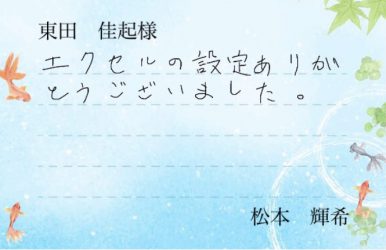 東田　佳起様
エクセルの設定ありが
とうございました。
松本　輝希